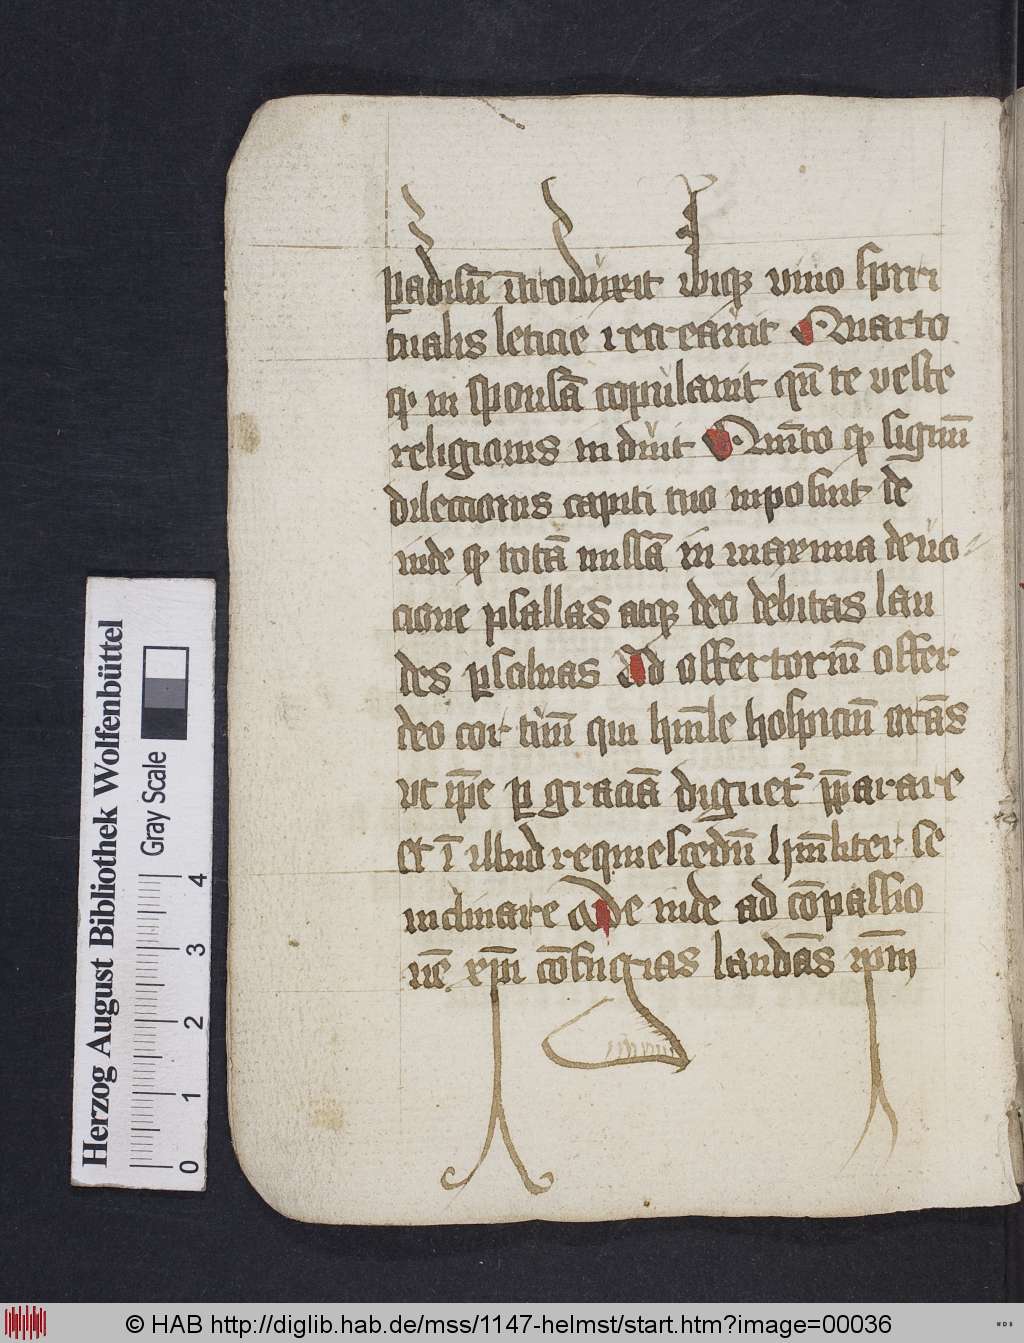 padisū ītroduxit ibiqꝫ vino spiri
tualis leticie recreauit Quarto
qꝫ in sponsā copulauit qn̄ te veste
religionis induit Quīto qꝫ signū
dileccionis capiti tuo inposuit de
inde qꝫ totā missā in maxima deuo
cione psallas atqꝫ deo debitas lau
des ꝑsoluas Ad offertoriū offer
deo cor tuū qui hūile hospiciū
vt ip̄e ꝑ graciā dignetʳ p̄parare
et ī illud requiescēdū hūiliter se
inclinare Deinde ad cōpassio
nē xp̄i laudās ip̄m
Herzog August Bibliothek Wolfenbüttel
Gray Scale
0 1 2 3 4
© HAB http://diglib.hab.de/mss/1147-helmst/start.htm?image=00036